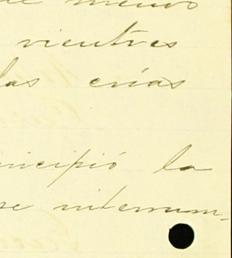 de menos
vientres
las crias
incipió la
se interrum-